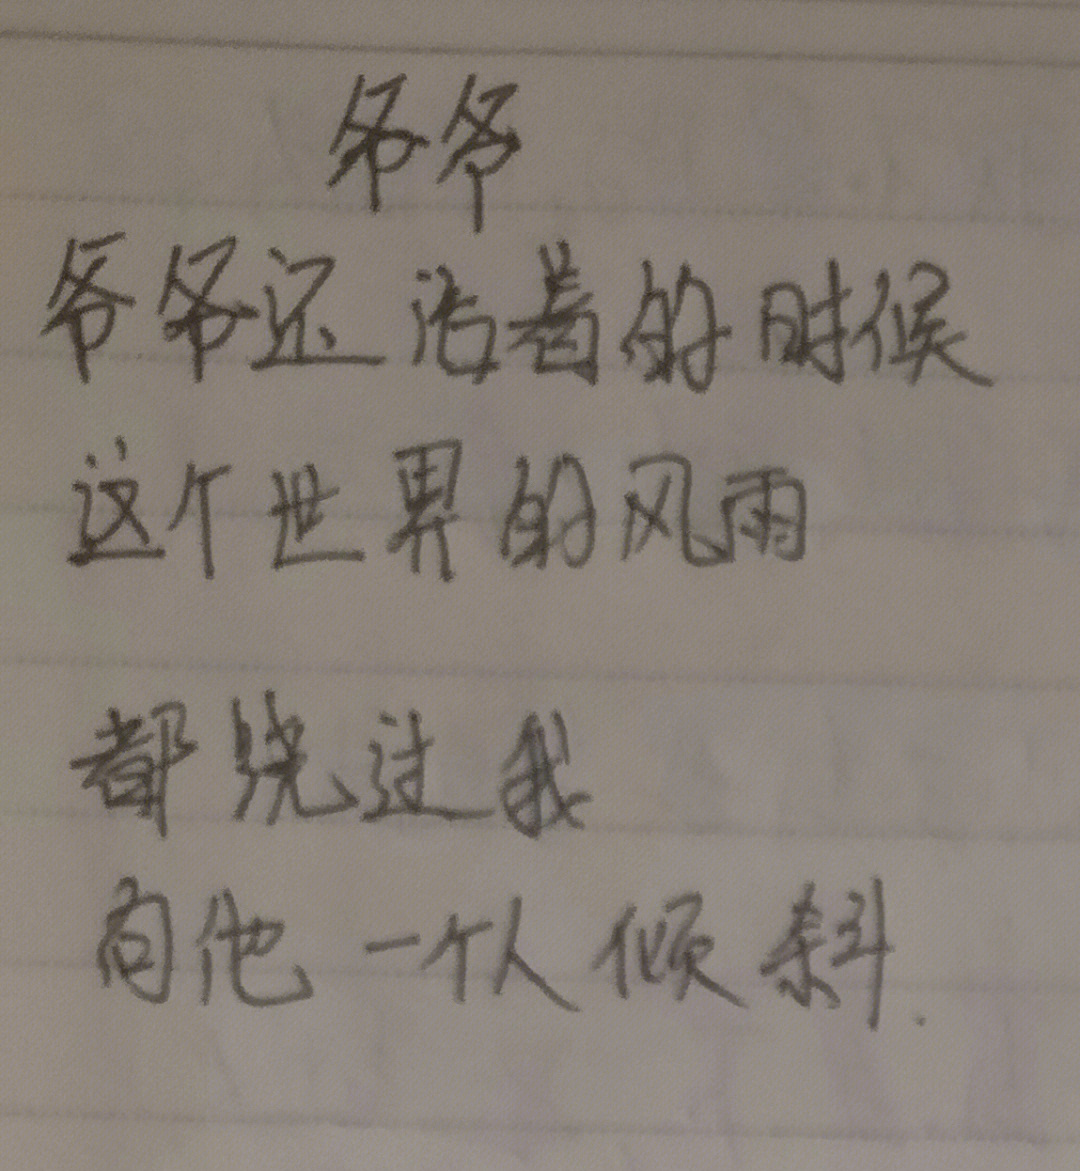 爷爷
爷爷还活着的时候
这个世界的风雨
都绕过我
向他一个人倾斜.